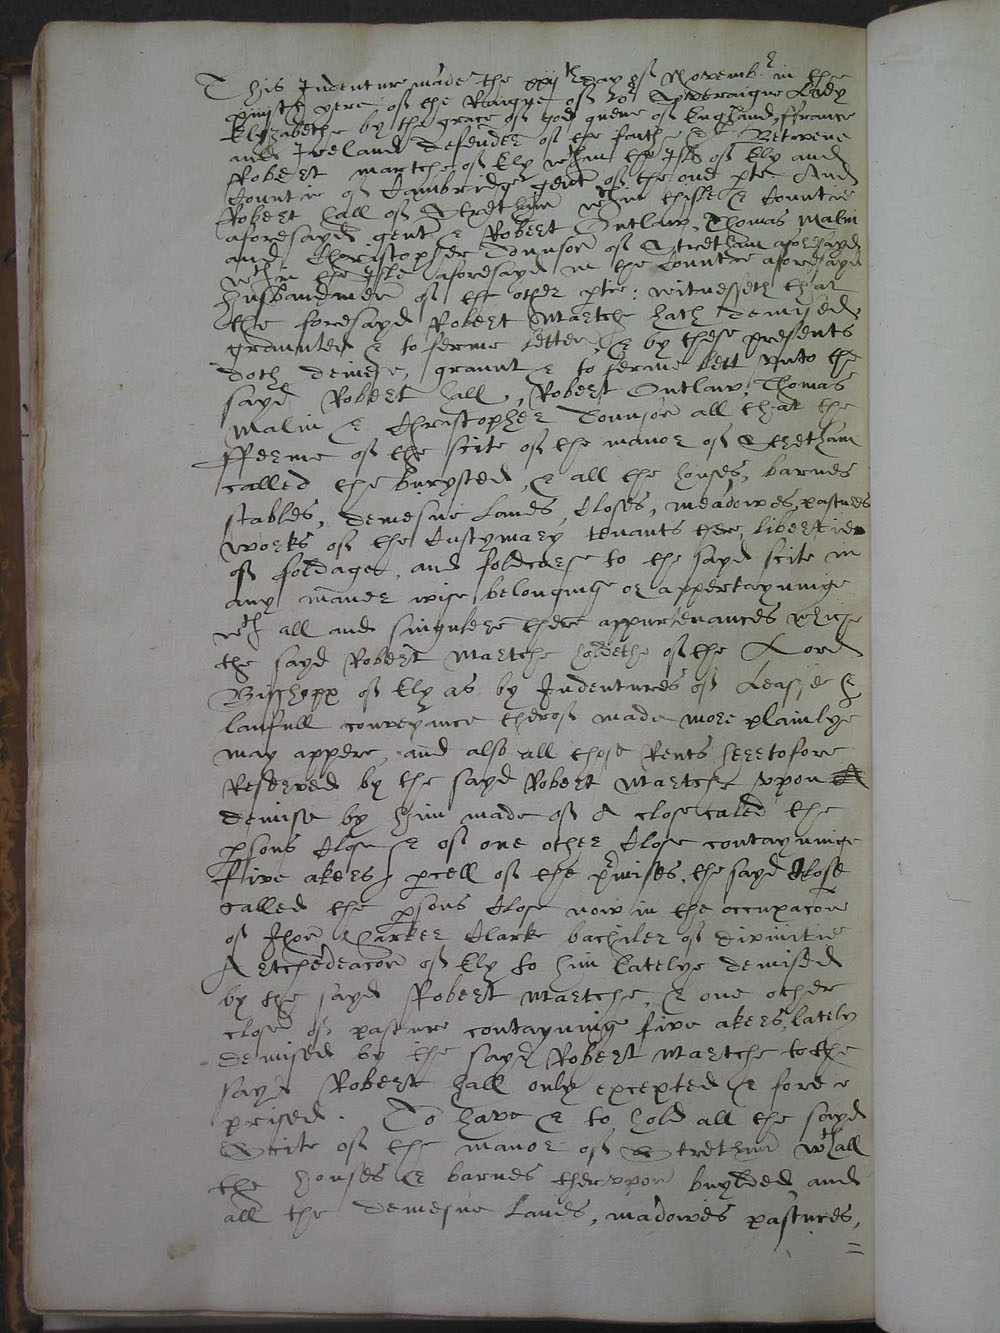 This Indenture made the xxijth day of Novembr in the
xviijth yere of the Raigne of or Soveraigne Lady
Elyzabethe by the grace of god quene of England, ffrance
and Ireland defender of the faith &c Betwene
Robert Martche of Ely wthin the Isle of Ely and
Countie of Cambridge gent of the one ptie And
Robert Hall of Stretham wthin thisle & Countie
aforesayd gent & Robert Outlaw, Thomas Malin
and Christopher Tounson of Stretham aforesayd
wthin the Isle aforesayd in the Countie aforesayd
husbandmen of the other ptie: witnesseth that
the foresayd Robert Martche hath demised,
graunted & to ferme letten, & by these presents
doth demise, graunt & to ferme lett unto the
sayd Robert Hall, Robert Outlaw, Thomas
Malin & Christopher Tounson all that the
fferme of the scite of the manor of Stretham
called the burysted, & all the houses, barnes
stables, demesne Lands, Closes, meadowes, pastures
works of the Custymary tenants there, liberties
of foldage, and foldcorse to the sayd scite in
any maner wise belonginge or appertayninge
wth all and singulere there appurtenances which
the sayd Robert Martche holdethe of the Lord
Bisshopp of Ely as by Indentures of Leasse &
laufull conveyance therof made more plainlye
may appere, and also all those Rents heretofore
Reserved by the sayd Robert Martche upon
demise by him made of A close called the
psons Close & of one other Close contayninge
five akers, pcell of the pmises, the sayd Close
called the psons Close now in the occupacon
of Jhon Parker Clarke bachiler of divinitie
Artchedeacon of Ely to him latelye demised
by the sayd Robert Martche, & one other
close of pasture contayninge five akers, lately
demised by the sayd Robert Martche to the
sayd Robert Hall only excepted & fore
prised. To have & to hold all the sayd
Scite of the manor of Stretham wth all
the houses & barnes therupon buylded, and
all the demesne Lands, madowes pastures,